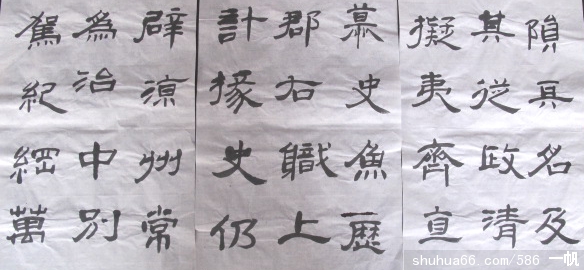 隕其名及
其從政清
擬夷齊直
慕史魚歷
郡右職上
計掾史仍
辟涼州常
為治中別
駕紀綱萬
shuhua66.com/586 一帆